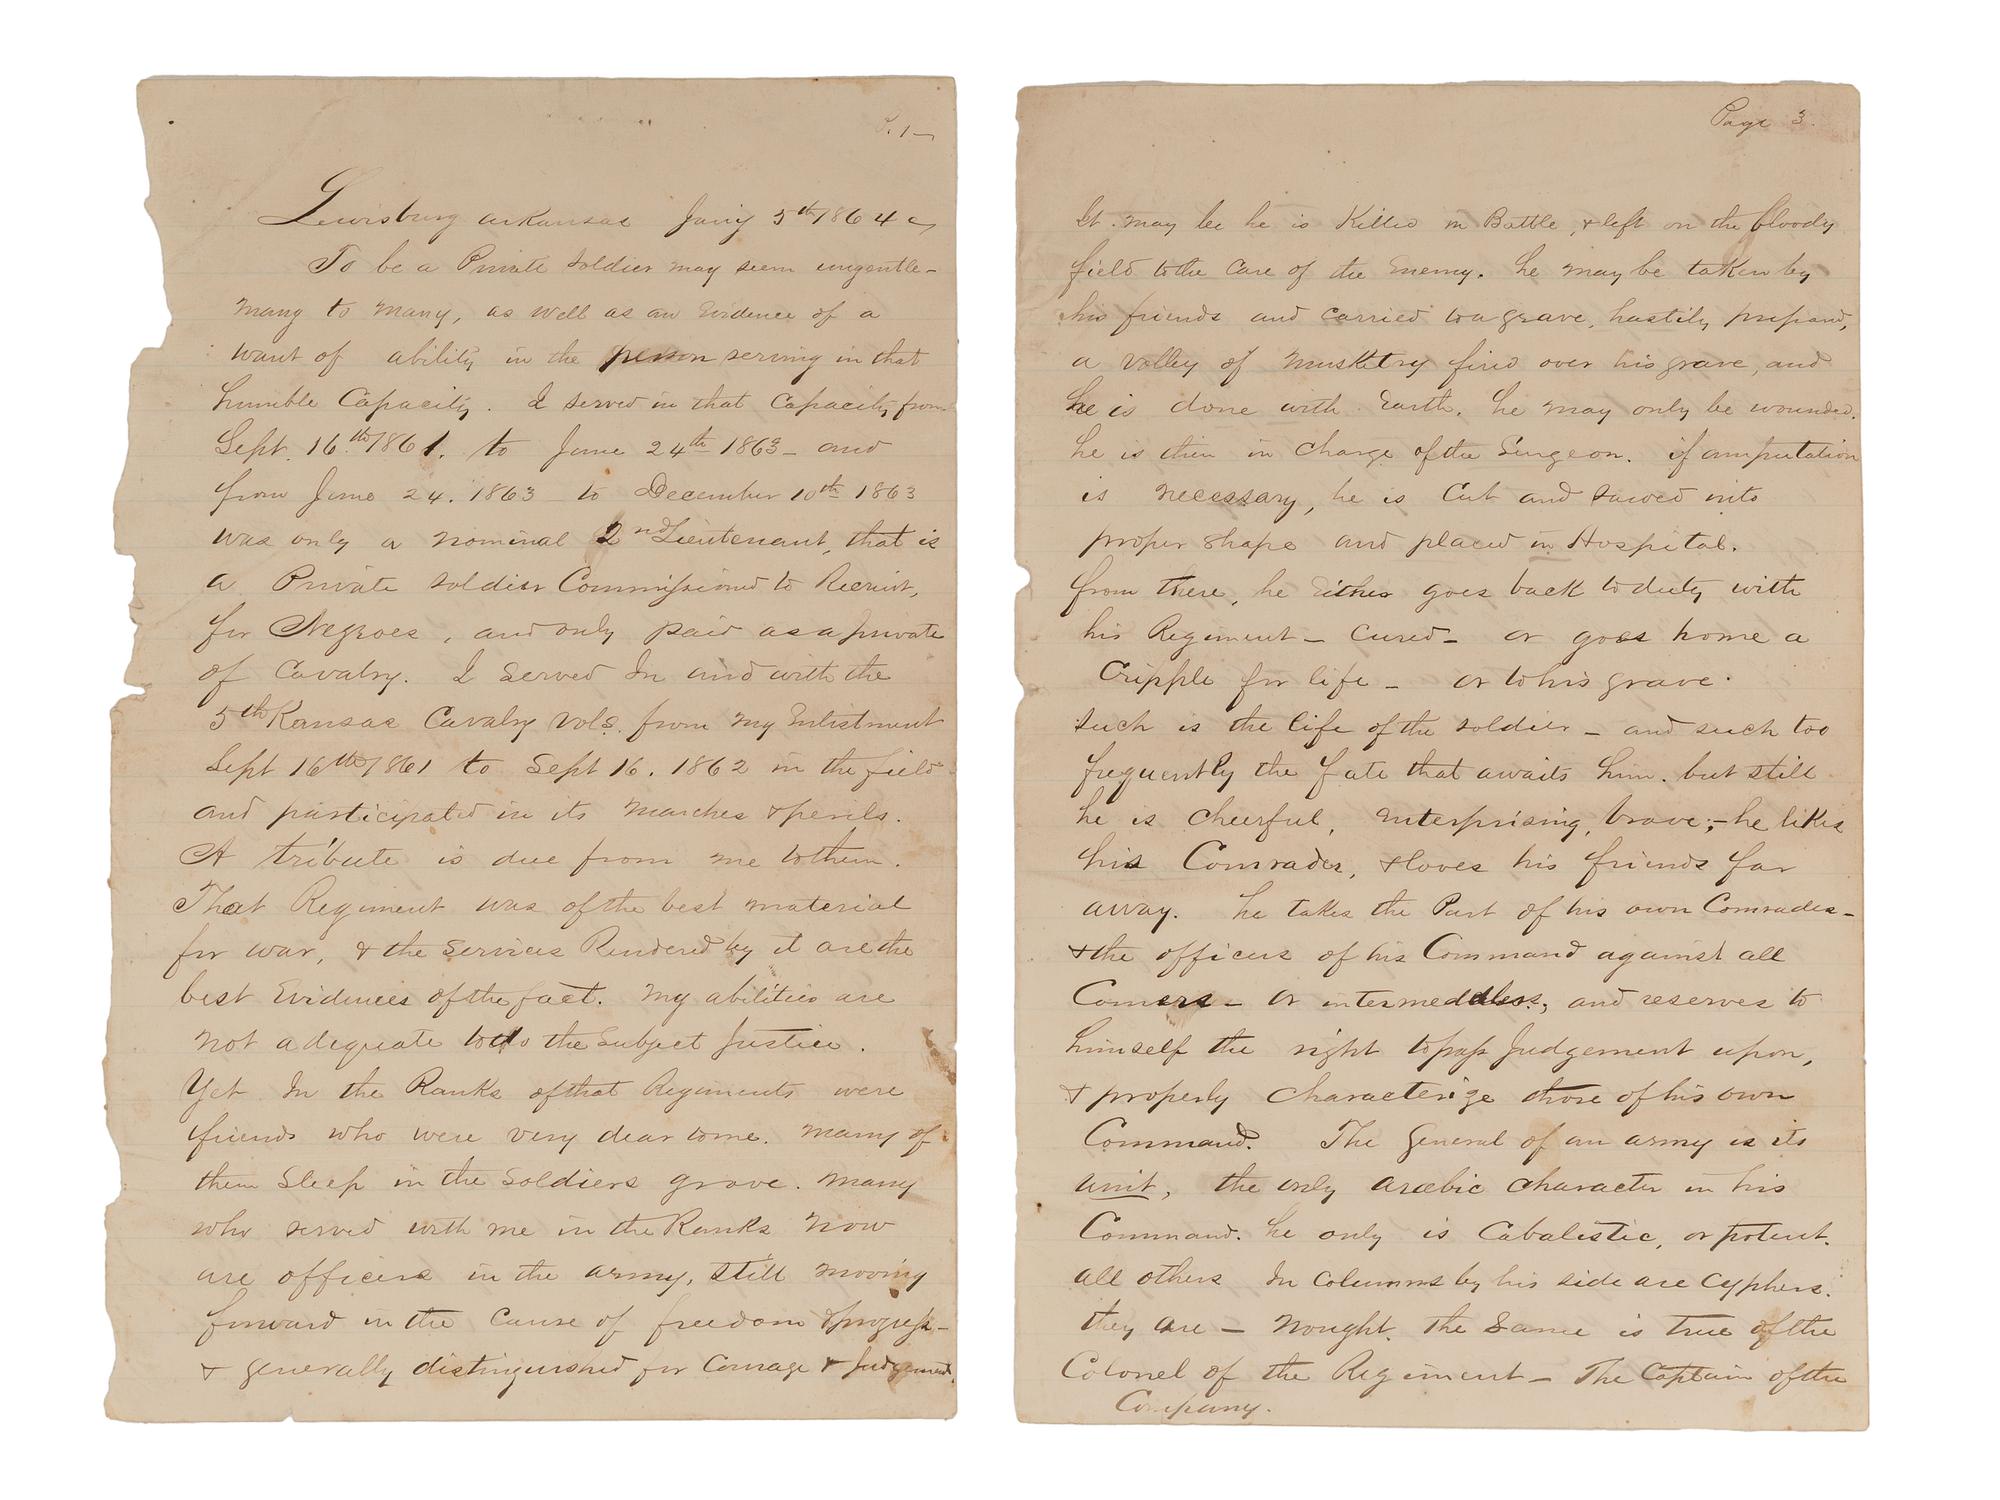 P. 1
Lewisburg Arkansas Jany 5th 1864
To be a Private soldier may seem ungentle-
many to many, as well as an Evidence of a
want of ability in the person serving in that
humble Capacity. I served in that Capacity from
Sept. 16th 1861. to June 24th 1863 – and
from June 24. 1863 to December 10th 1863
was only a nominal 2nd Lieutenant, that is
a Private soldier Commissioned to Recruit,
for Negroes, and only paid as a private
of Cavalry. I Served In and with the
5th Kansas Cavalry Vols. from my Enlistment
Sept 16th 1861 to Sept 16. 1862 in the field
and participated in its marches & perils.
A tribute is due from me to them.
That Regiment was of the best material
for war, & the services Rendered by it are the
best Evidences of the fact. My abilities are
not adequate to do the Subject Justice.
Yet In the Ranks of that Regiments were
friends who were very dear to me. Many of
them Sleep in the Soldiers grave. Many
who served with me in the Ranks now
are officers in the army, still moving
forward in the Cause of freedom & progress –
& generally distinguished for Courage & Judgement.
Page 3.
It may be he is Killed in Battle, & left on the bloody
field to the Care of the Enemy. he may be taken by
his friends and carried to a grave, hastily prepared,
a volley of musketry fired over his grave, and
he is done with Earth. he may only be wounded.
he is then in charge of the Surgeon. if amputation
is necessary, he is Cut and sawed into
proper shape and placed in Hospital.
from there, he Either goes back to duty with
his Regiment – Cured – or goes home a
Cripple for life – or to his grave.
such is the life of the soldier – and such too
frequently the fate that awaits him. but still
he is cheerful, Enterprising, brave; – he likes
his Comrades, & loves his friends far
away. he takes the Part of his own Comrades –
& the officers of his Command against all
Comers – or intermeddlers; and reserves to
himself the right to pass Judgement upon,
& properly Characterize those of his own
Command. The General of an army is its
unit, the only arabic character in his
Command. he only is Cabalistic, or potent.
all others In columns by his side are cyphers.
they are – Nought. the Same is true of the
Colonel of the Regiment – The Captain of the
Company.